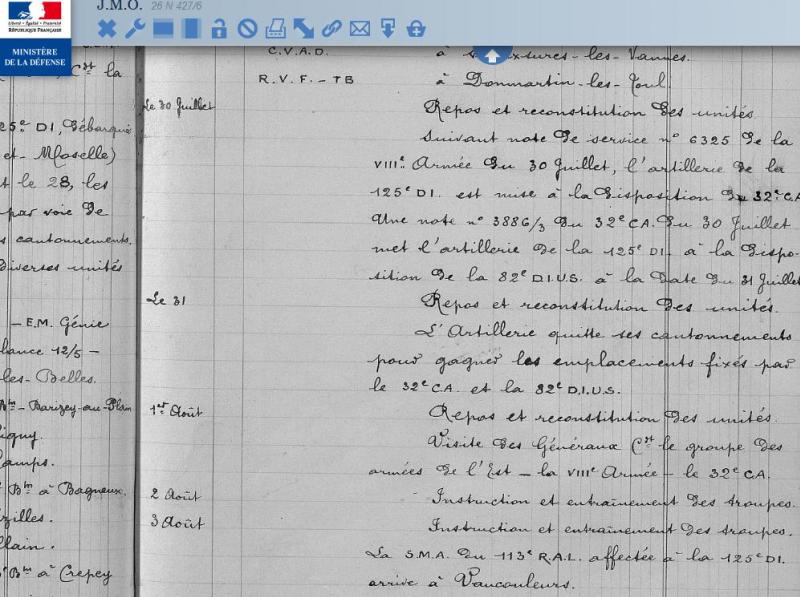 J.M.O. 26 N 427/6
Liberté • Égalité • Fraternité
RÉPUBLIQUE FRANÇAISE
MINISTÈRE
DE LA DÉFENSE
Cst la
25e DI, Débarqué
et-Mloselle)
t le 28, les
par voie de
s cantonnements.
diverses unités
- E.M. Génie
lance 12/5 -
les-Belles.
Barizey-au-Plain
igny.
amps.
Bm à Bagneux.
zilles.
llain.
Bm à Crepey
C.V.A.D. à xures-les-Vannes.
R.V.F. - TB à Donmartin-les-Toul
Le 30 Juillet
Repos et reconstitution des unités.
Suivant note de service n° 6325 de la
VIIIe Armée du 30 Juillet, l'artillerie de la
125e DI. est mise à la disposition du 32e C.A
Une note n° 3886/3 du 32e CA. du 30 Juillet
met l'artillerie de la 125e DI. à la dispo-
sition de la 82e D.I.U.S. à la date du 31 Juillet
Le 31
Repos et reconstitution des unités.
L'Artillerie quitte ses cantonnements
pour gagner les emplacements fixés par
le 32e CA. et la 82e D.I.U.S.
1er Août
Repos et reconstitution des unités.
Visite des Généraux Cst le groupe des
armées de l'Est - la VIIIe Armée - le 32e CA.
2 Août
Instruction et entraînement des troupes.
3 Août
Instruction et entraînement des troupes.
La S.M.A. du 113e R.A.L. affectée à la 125e DI.
arrive à Vaucouleurs.